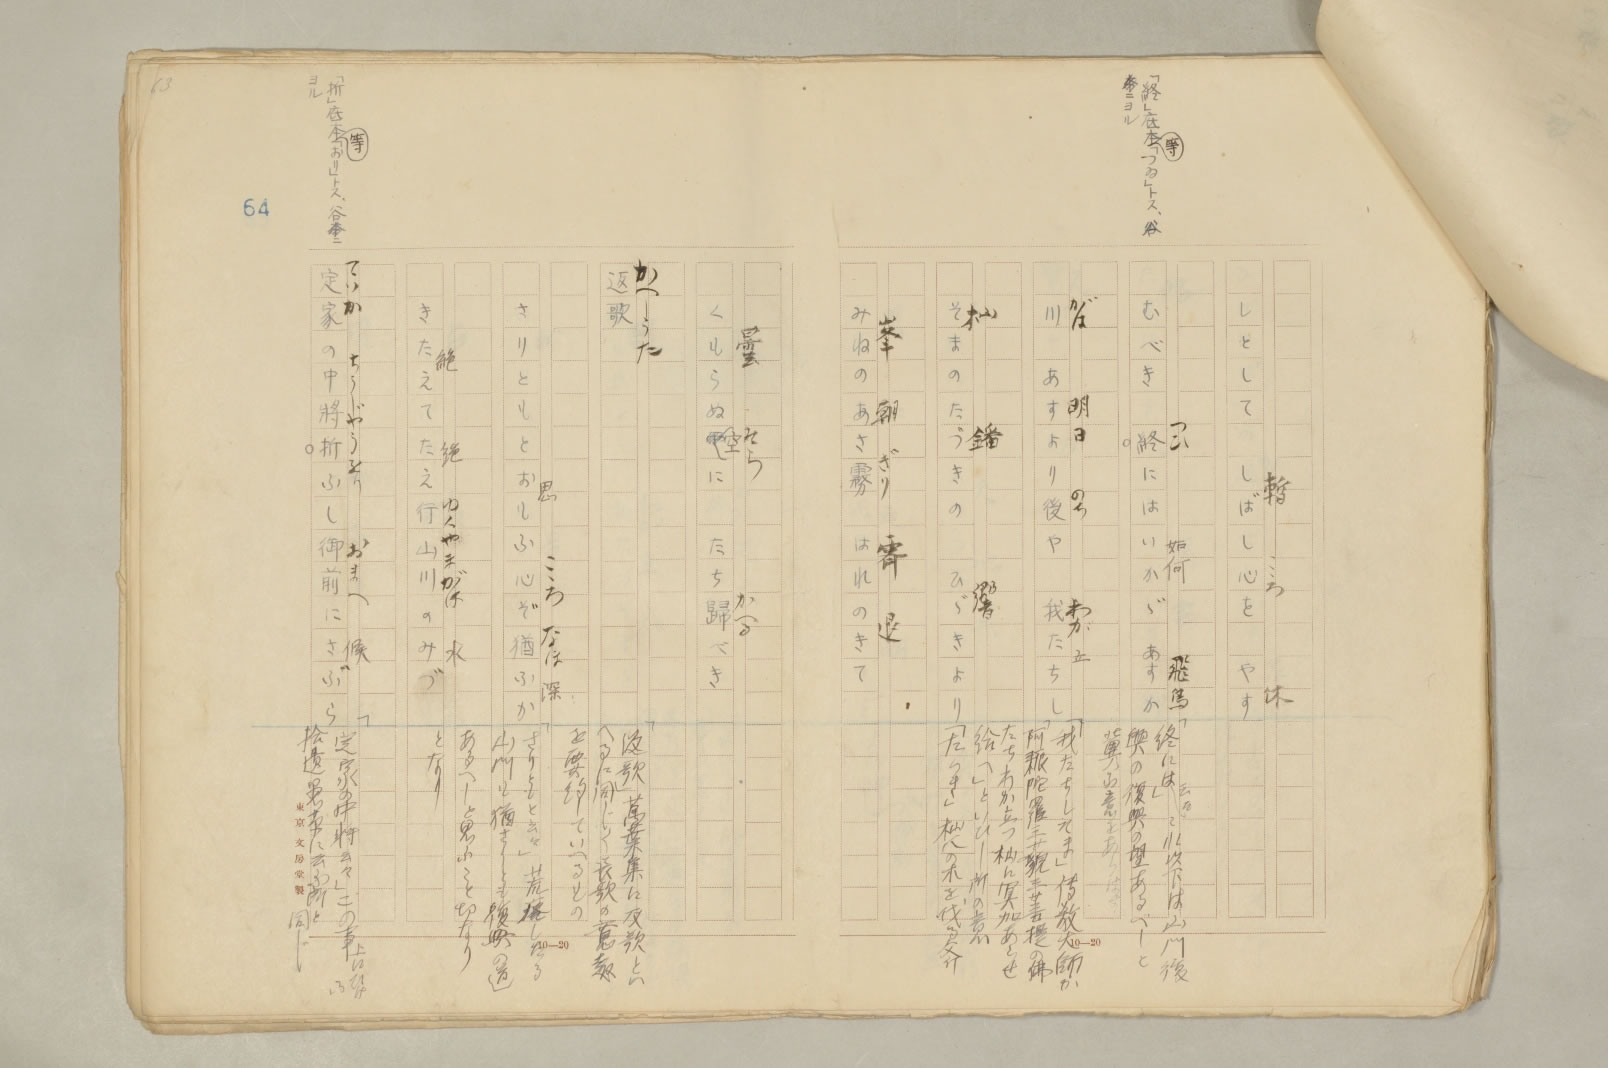 「終」在本「つゐ」トス、谷
本ニヨル
等
しとして しばし心を やす
暫 こころ 休
むべき 終にはいかゞ あすか
つひ 如何 飛鳥
川 あすより後や 我たちし
がは 明日 のち わが 立
そまのたづきの ひゞきより
杣 鐇 響
みねのあさ霧 はれのきて
峯 朝 ぎり 霽 退
くもらぬ空に たち歸べき
曇 そら かへる
返歌
かへしうた
さりともとおもふ心ぞ猶ふか
思 こころ なほ 深
きたえてたえ行山川のみづ
絶 絶 ゆく やまがは 水
定家の中將折ふし御前にさぶら
ていか ちうじやうをり おまへ 候
「終には」
興の復興の望あるべしと
「我たちしそま」傳教大師か
阿耨陀羅三藐三菩提の佛
たちわか立つ杣に冥加あらせ
給へ」といひし所の意
「返歌 萬葉集に反歌とい
へるに同じく長歌の意
を要約していへるもの
「さりともと云々」荒
山川も猶さりとも復興の道
あるべしと思ふこと切なり
となり
「定家の中將云々」この事上に
拾遺愚草に云ふ所と
同じ
「折」在本「おり」トス、谷本ニ
ヨル
等
63
64
10—20
10—20
東京 文房堂製